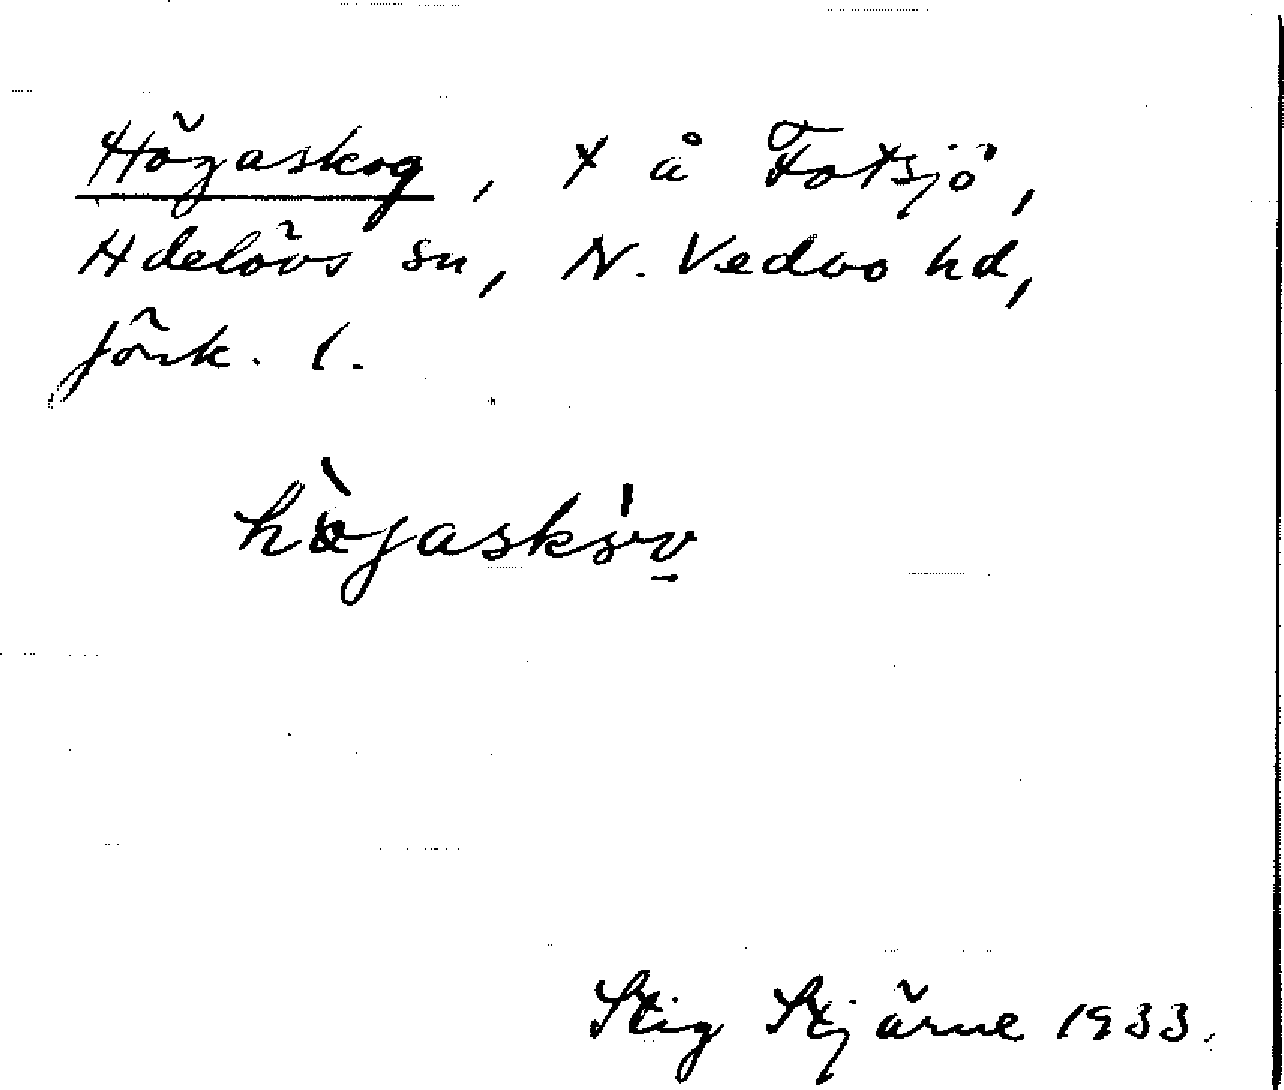 Högaskog, t å Fotsjö,
Adelövs sn, N. Vedbo hd,
Jönk. l.
hö̀gaskó̤v
Stig Stjärne 1933.